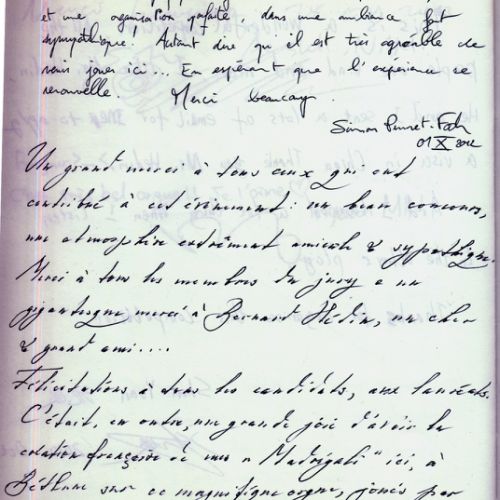 et une organisation parfaite, dans une ambiance fort
sympathique! Autant dire qu'il est très agréable de
venir jouer ici... En espérant que l'expérience se
renouvelle. Merci beaucoup.
Simon
01 X 2012
Un grand merci à tous ceux qui ont
contribué à cet événement : un beau concours,
une atmosphère extrêmement amicale & sympathique.
Merci à tous les membres du jury & un
gigantesque merci à Bernard Hédin, un cher
& grand ami....
Félicitations à tous les candidats, aux lauréats.
C'était, en outre, une grande joie d'avoir la
création française de mes "Madrigali" ici, à
Béthune sur ce magnifique orgue, joués par